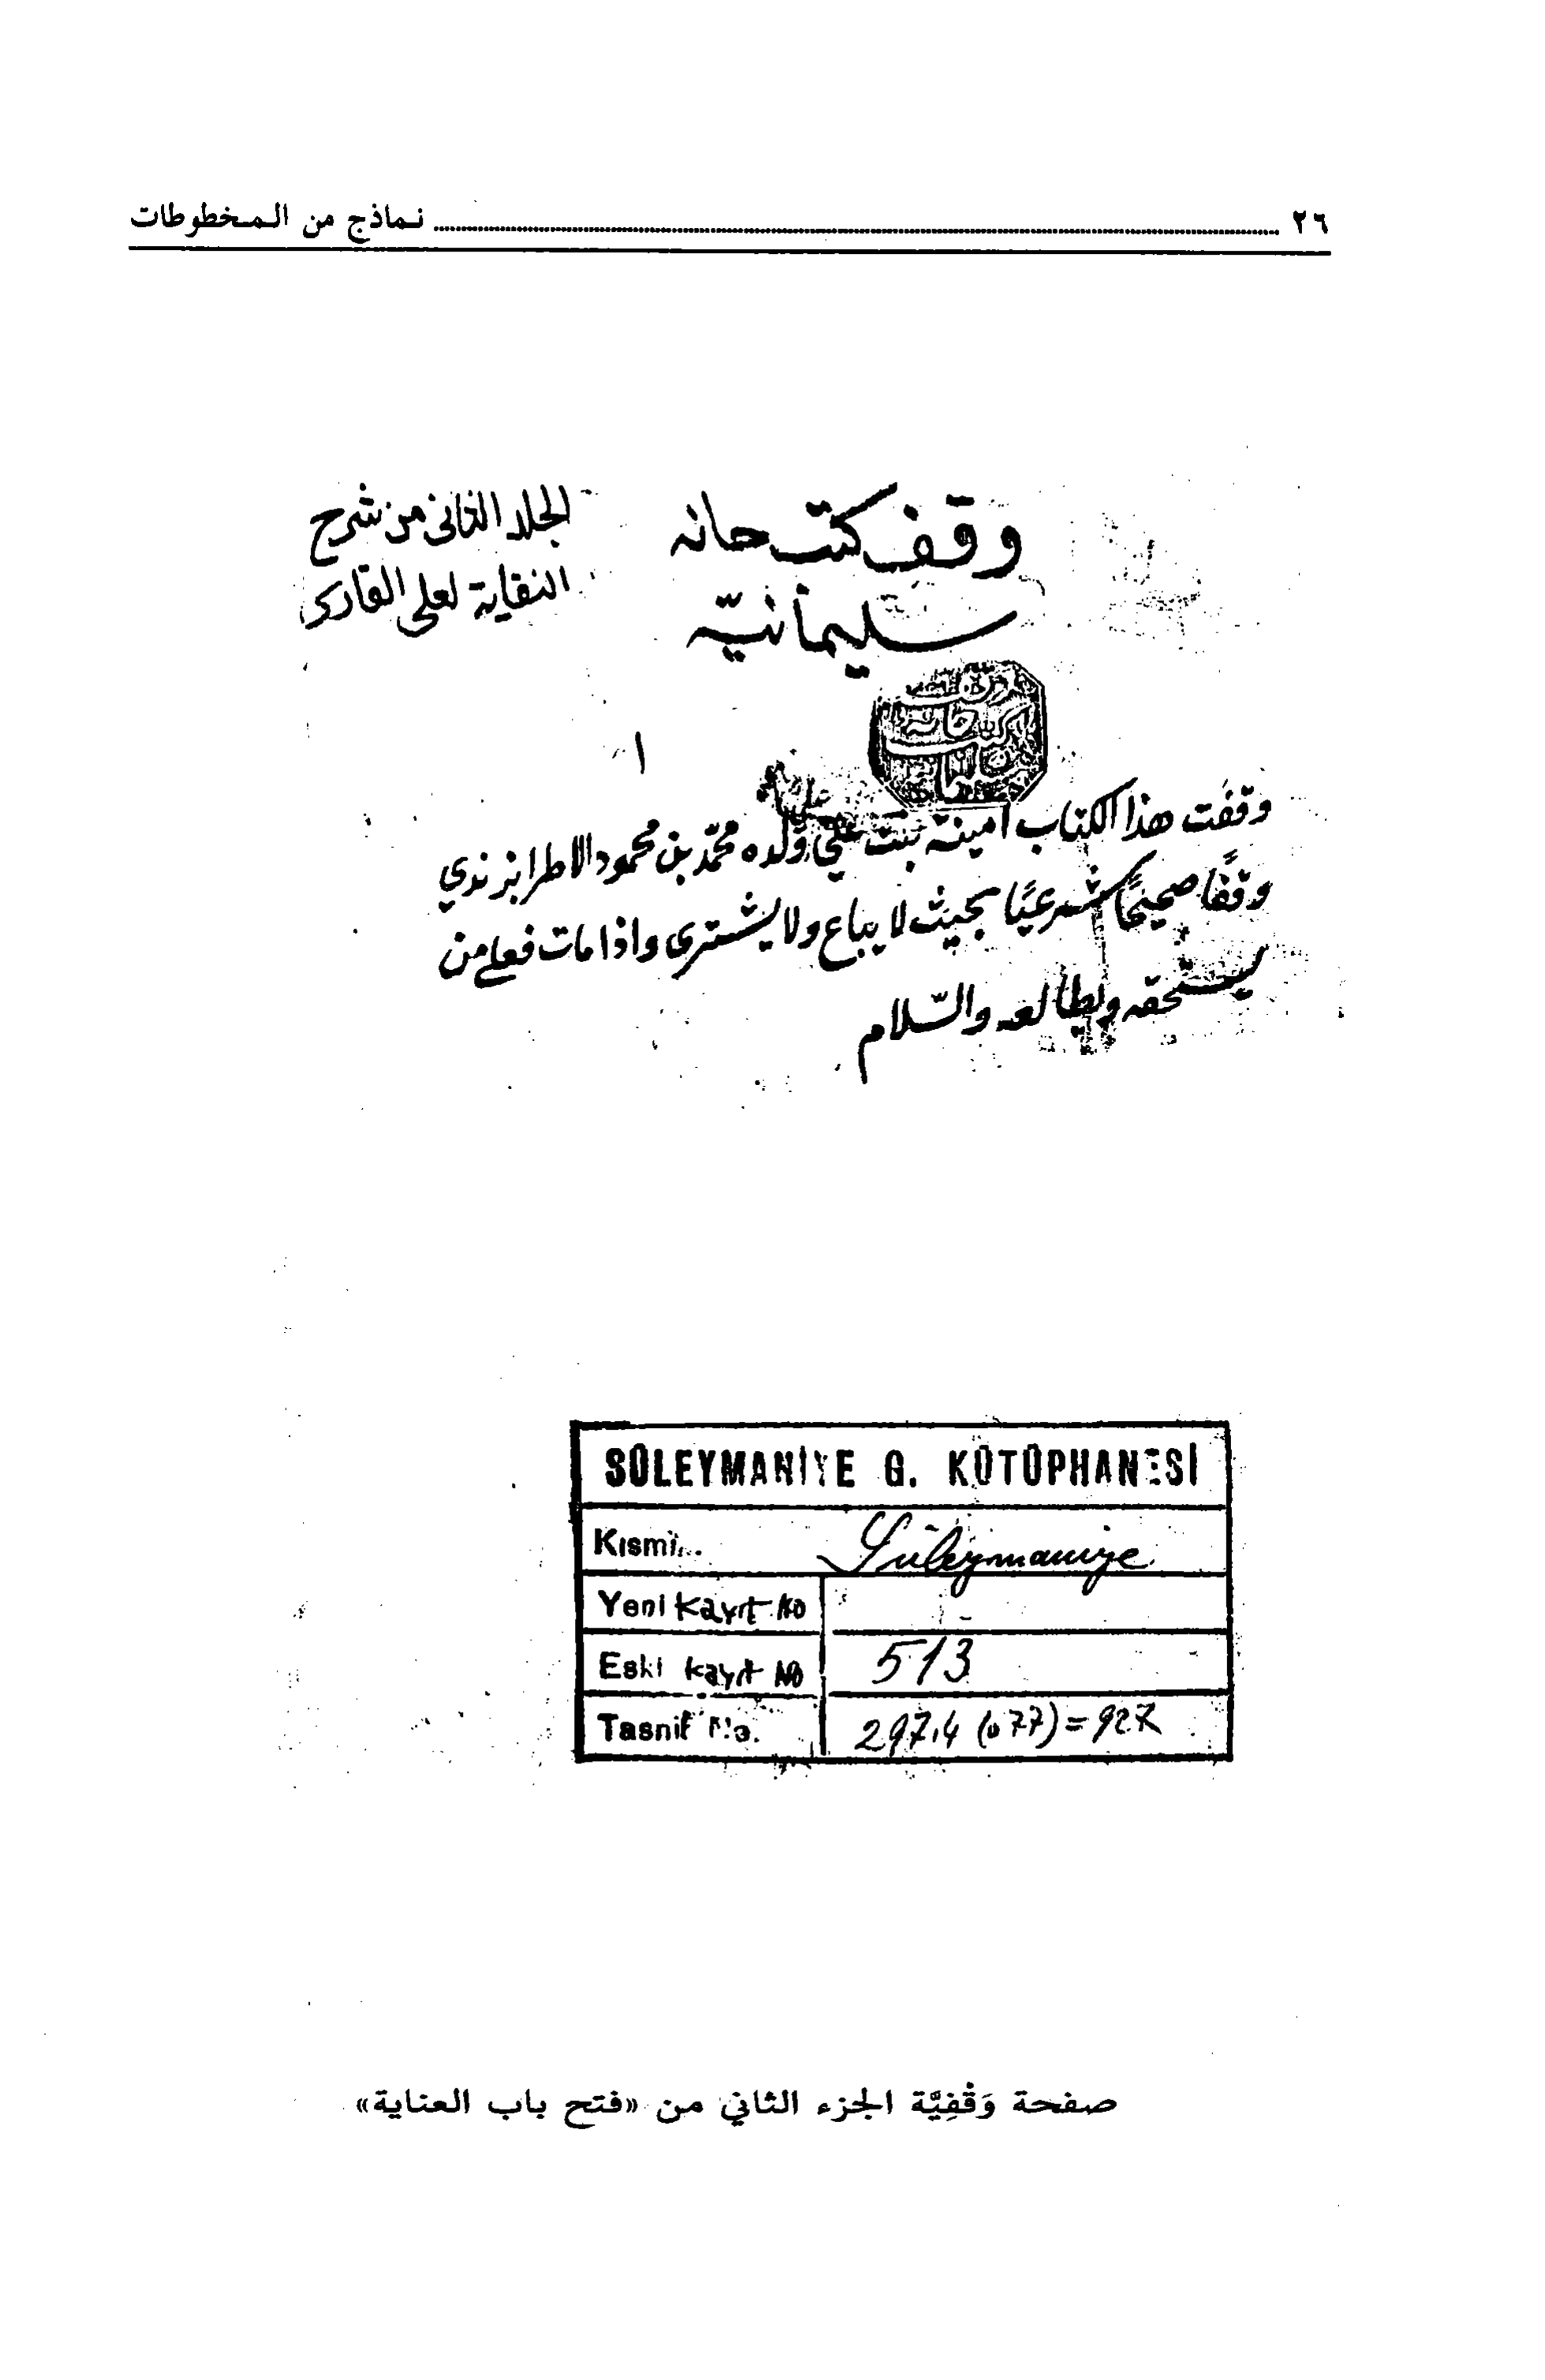 ٢٦ نماذج من المخطوطات
الجلد الثانى من شرح
النقاية لعلى القارى
وقف كتبخانه
سليمانيّه
١
وقفت هذا الكتاب امينة بنت علي ولده محمّد بن محمود الاطرابزندي
وقفًا صحيحًا شرعيًا بحيث لا يباع ولا يشترى واذا مات فعلى من
يستحقه ويطالعه والسّلام
SÜLEYMANİYE G. KÜTÜPHANESİ
Kısmi... Süleymaniye
Yeni Kayıt No
Eski kayıt No 513
Tasnif No. 297.4 (077) = 927
صفحة وَقْفِيَّة الجزء الثاني من «فتح باب العناية»